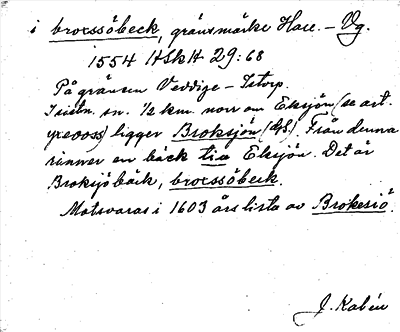 i brocssöbeck, gränsmärke Hall. – Vg.
1554 HSkH 29:68
På gränsen Veddige – Istorp.
I Istn. sn. ½ km. norr om Eksjön (se art.
yxeooss) ligger Broksjön (GS.). Från denna
rinner en bäck till Eksjön. Det är
Broksjöbäck, brocssöbeck.
Motsvaras i 1603 års lista av Brokesiö.
J. Kalén